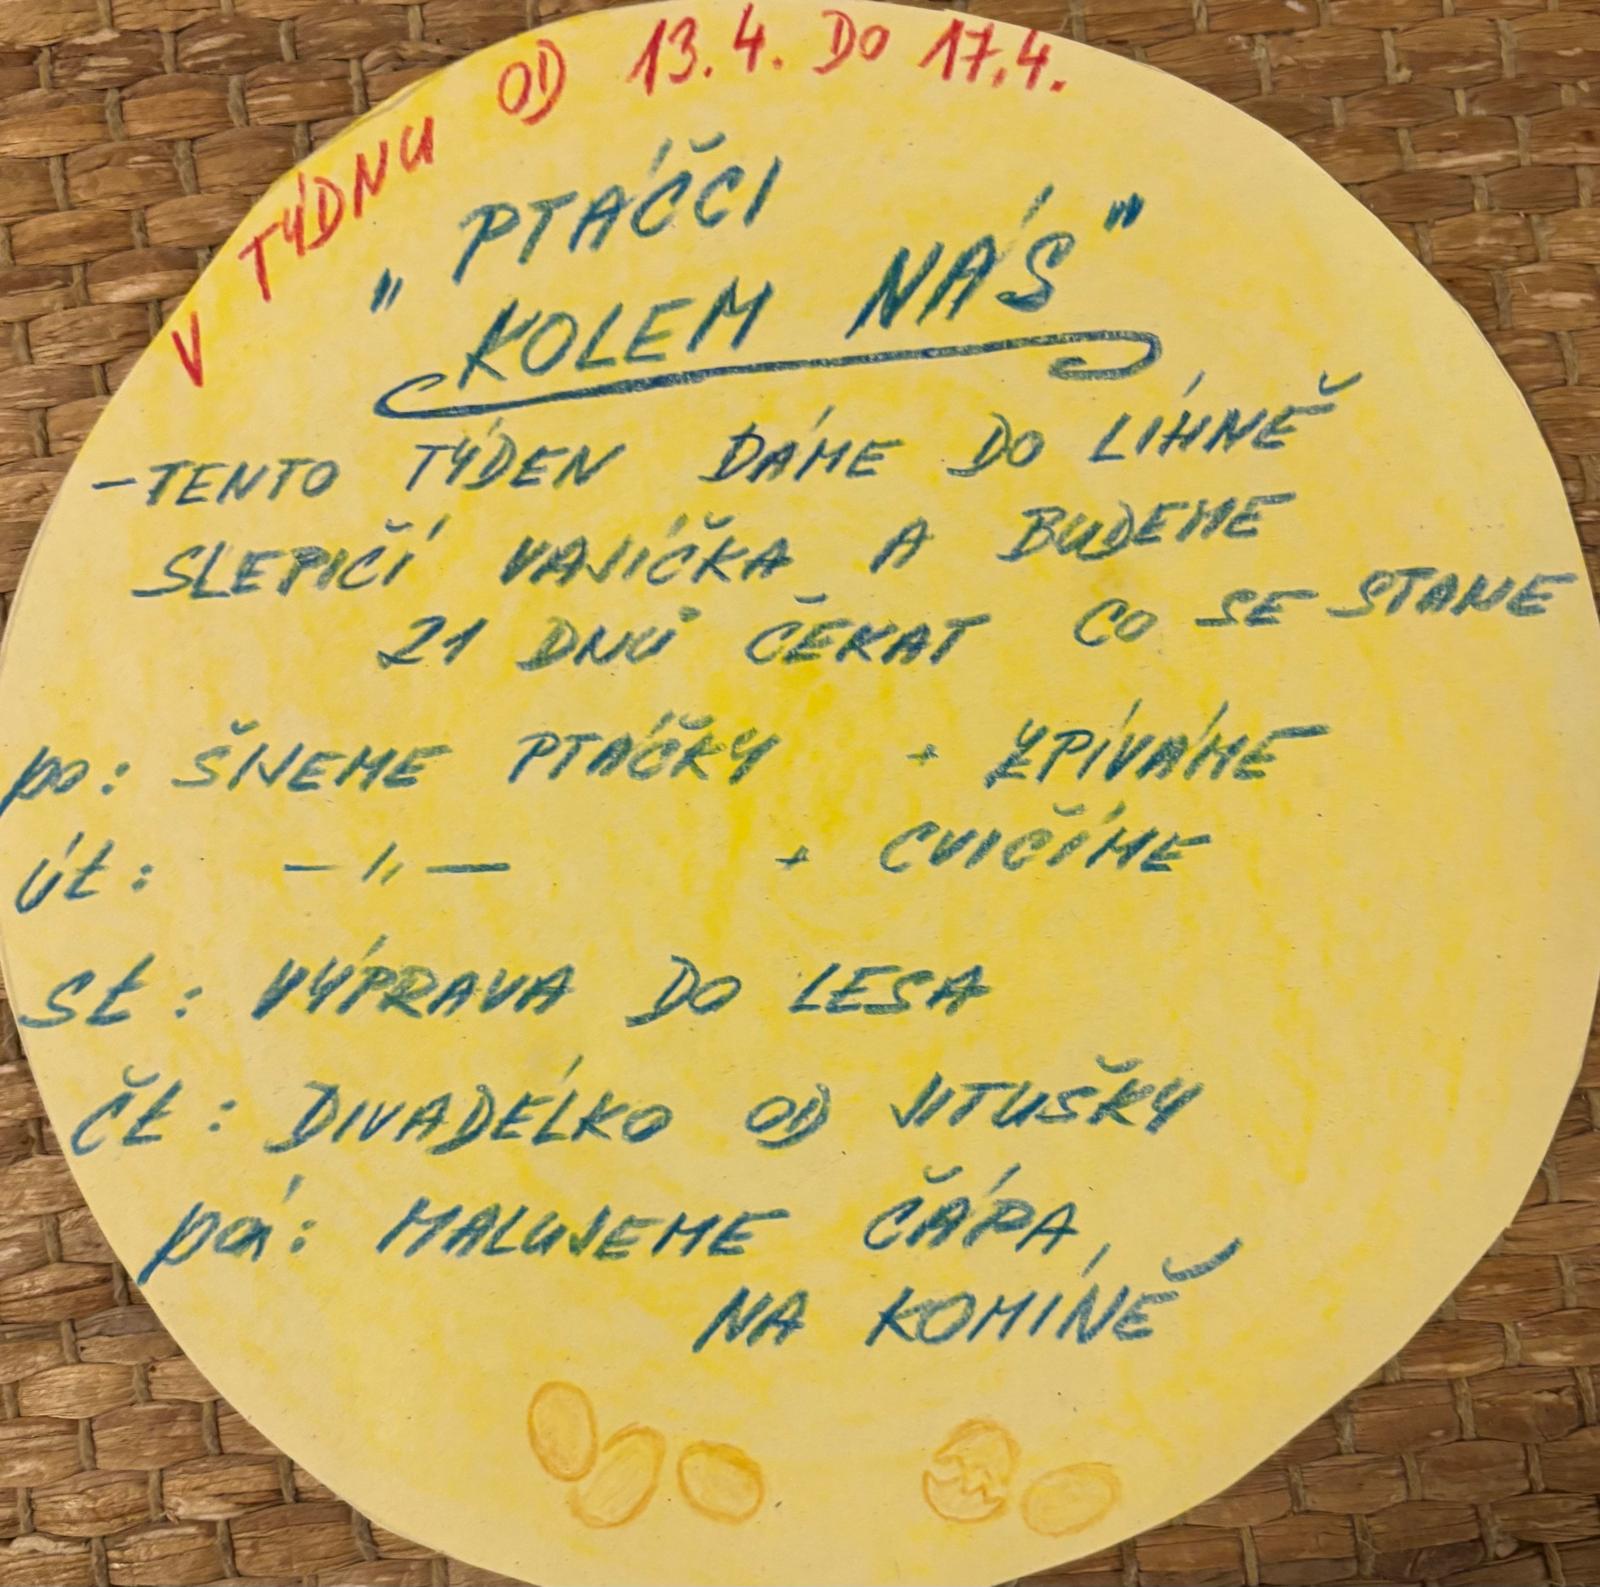 V TÝDNU OD 13.4. DO 17.4.
„PTÁČCI
KOLEM NÁS"
-TENTO TÝDEN DÁME DO LÍHNĚ
SLEPIČÍ VAJÍČKA A BUDEME
21 DNŮ ČEKAT CO SE STANE
po: ŠIJEME PTÁČKY + ZPÍVÁME
út: —1,,— + CVIČÍME
st: VÝPRAVA DO LESA
čt: DIVADÉLKO OD JITUŠKY
pá: MALUJEME ČÁPA,
NA KOMÍNĚ